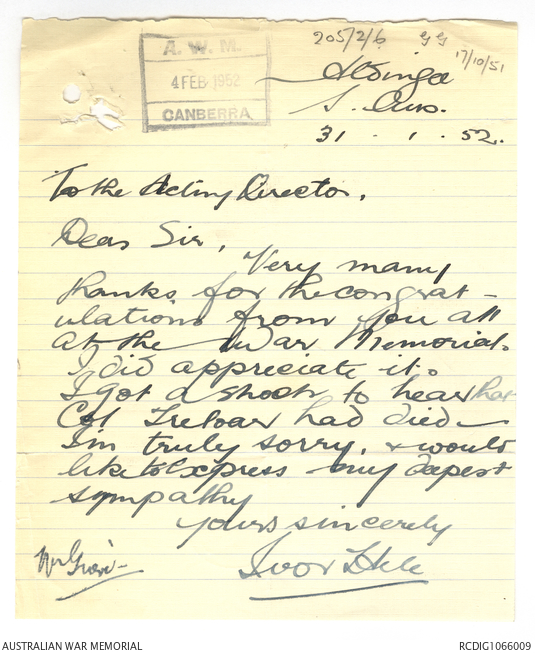 205/2/6 GG 17/10/51
A. W. M.
4 FEB 1952
CANBERRA
Aldinga
S. Aus.
31 . 1 . 52.
To the Acting Director.
Dear Sir,
Very many
thanks for the congrat-
ulations from you all
at the War Memorial.
I did appreciate it.
I got a shock to hear that
Col Treloar had died –
I'm truly sorry, & would
like to express my deepest
sympathy
Yours sincerely
Ivor Hele
AUSTRALIAN WAR MEMORIAL
RCDIG1066009